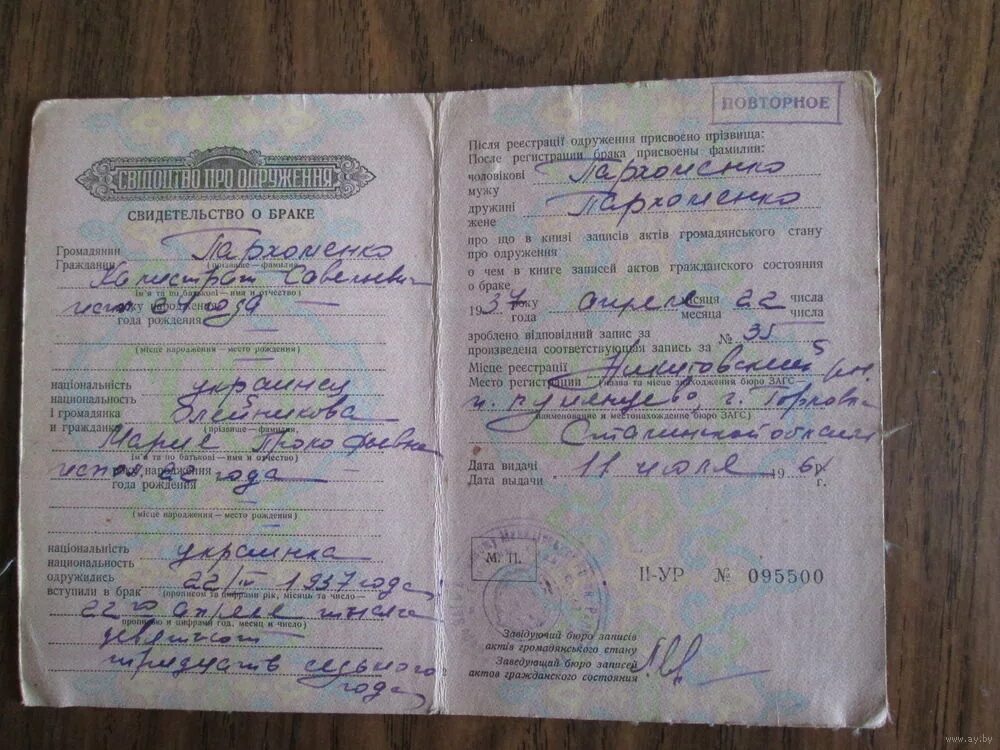 СВІДОЦТВО ПРО ОДРУЖЕННЯ
СВИДЕТЕЛЬСТВО О БРАКЕ
Громадянин
Гражданин
Пархоменко
(прізвище — фамилия)
Калистрат Савельевич
(ім'я та по батькові — имя и отчество)
року народження
года рождения
исп. 21 года
(місце народження — место рождения)
національність
национальность
украинец
і громадянка
и гражданка
Олейникова
(прізвище — фамилия,
Мария Прокофьевна
ім'я та по батькові — имя и отчество)
року народження
года рождения
испол. 22 года
(місце народження — место рождения)
національність
национальность
украинка
одружились
вступили в брак
22/IV 1937 года
(прописом та цифрами рік, місяць та число —
22го апреля тысяча
прописью и цифрами год, месяц и число)
девятьсот
тридцать седьмого
года
ПОВТОРНОЕ
Після реєстрації одруження присвоєно прізвища:
После регистрации брака присвоены фамилии:
чоловікові
мужу
Пархоменко
дружині
жене
Пархоменко
про що в книзі записів актів громадянського стану
про одруження
о чем в книге записей актов гражданского состояния
о браке
1937 року апреля місяця 22 числа
года месяца числа
зроблено відповідний запис за
произведена соответствующая запись за
№ 35
Місце реєстрації
Место регистрации
Никитовский
(назва та місце знаходження бюро ЗАГС —
г. Горловка
наименование и местонахождение бюро ЗАГС)
Сталинской области
Дата видачі
Дата выдачи
11 июля 1961 р.
г.
М. П.
II-УР № 095500
Завідуючий бюро записів
актів громадянського стану
Заведующий бюро записей
актов гражданского состояния
www.ay.by